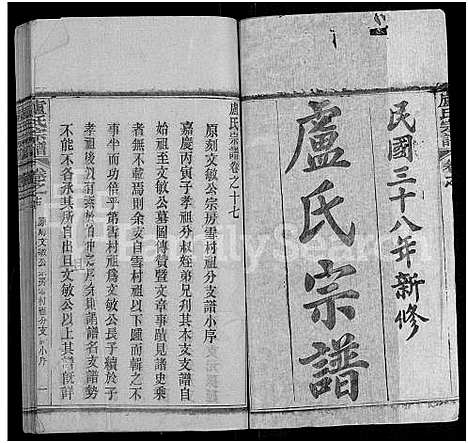 盧氏宗譜
民國三十八年新修
盧氏宗譜
盧氏宗譜卷之十七
原刻文敏公宗房雪村祖分支譜小序
嘉慶丙寅子孝祖分叔姪弟兄刋其木支支譜自
始祖至文敏公墓圖傳贊曁文章事蹟見諸史乘
者無不載焉則余支自雪村祖以下匯而輯之不
事半而功倍乎第雪村祖爲文敏公長子續於子
孝祖後則
譜名支譜勢
不能不各承其所自出且文敏公以上其
盧氏宗譜
卷之十七
原刻文敏公宗房雪村祖分支小序
一
FamilySearch